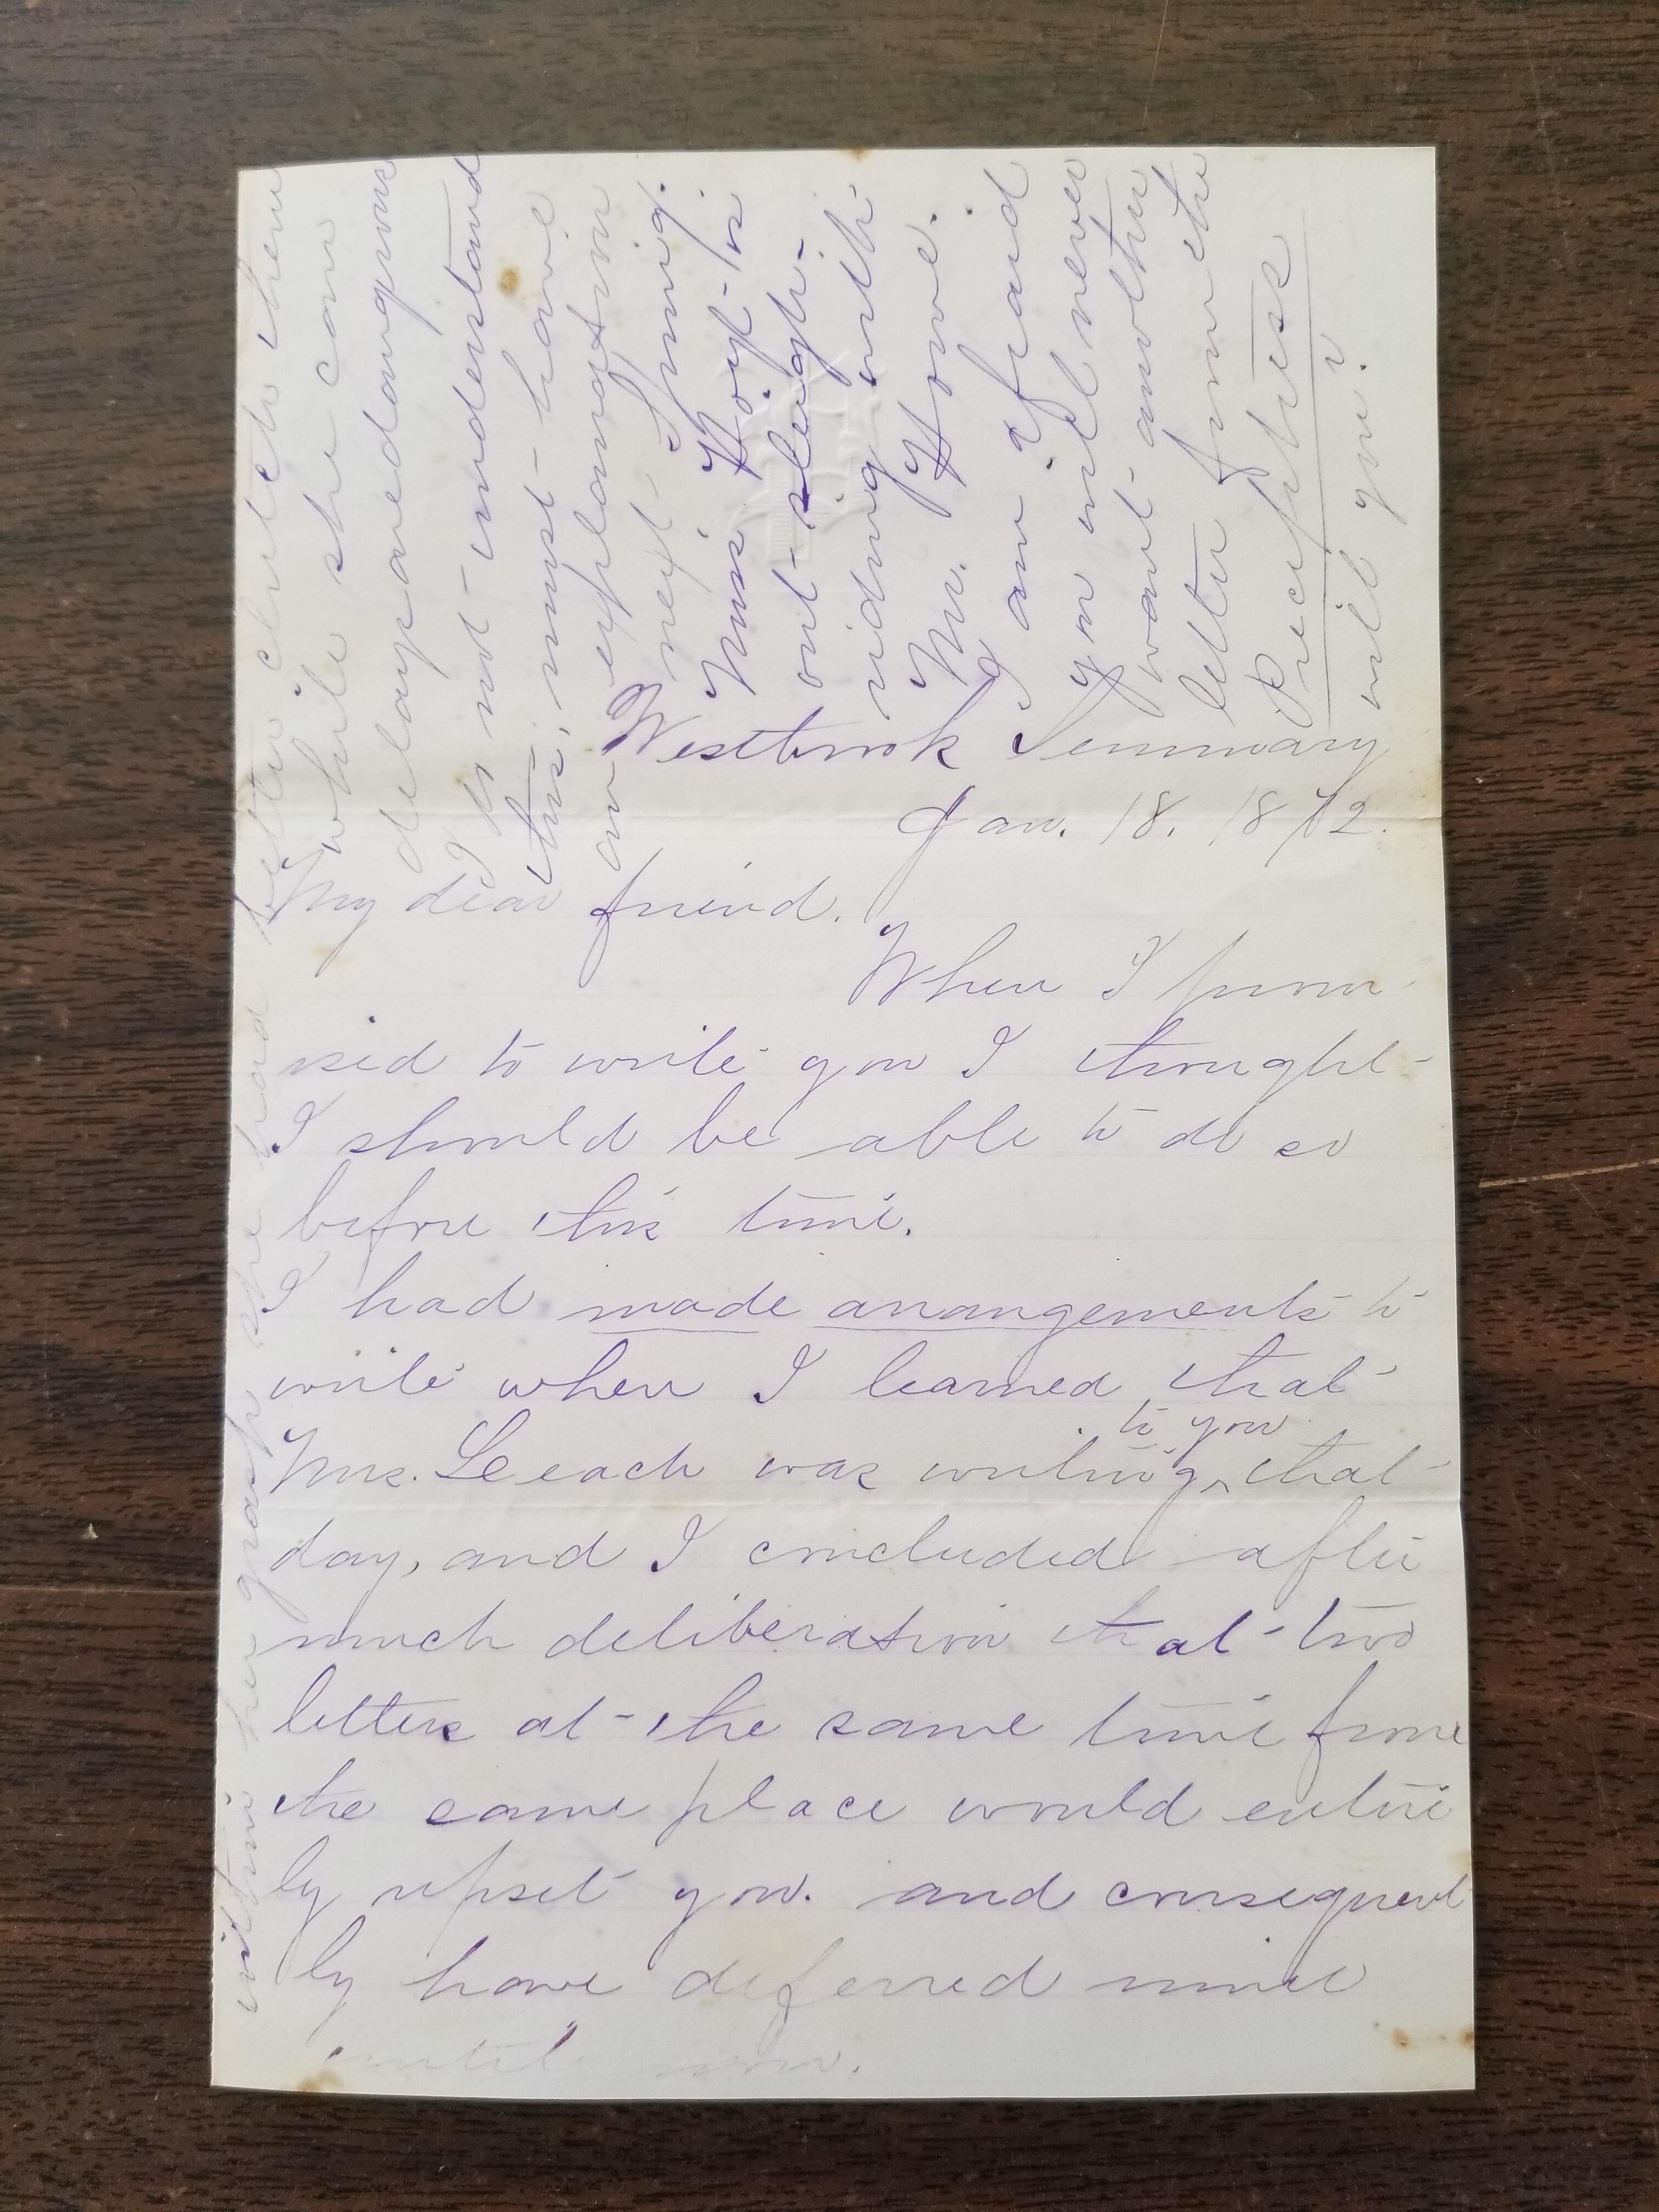 Westbrook Seminary
Jan. 18. 1872.
My dear friend.
When I prom-
ised to write you I thought
I should be able to do so
before this time.
I had made arrangements to
write when I learned that
Mrs. Leeach was writing to you that
day, and I concluded after
much deliberation that two
letters at the same time from
the same place would entire
ly upset you. and consequent
ly have deferred mine
until now.
within her grasp she had better clutch them
while she can
delays are dangerous
I do not understand
this, must have
an explanation
next Spring.
Miss Hoyt is
out sleigh-
riding with
Mr. Howe.
I am afraid
you will never
want another
letter from the
Preceptress
will you?